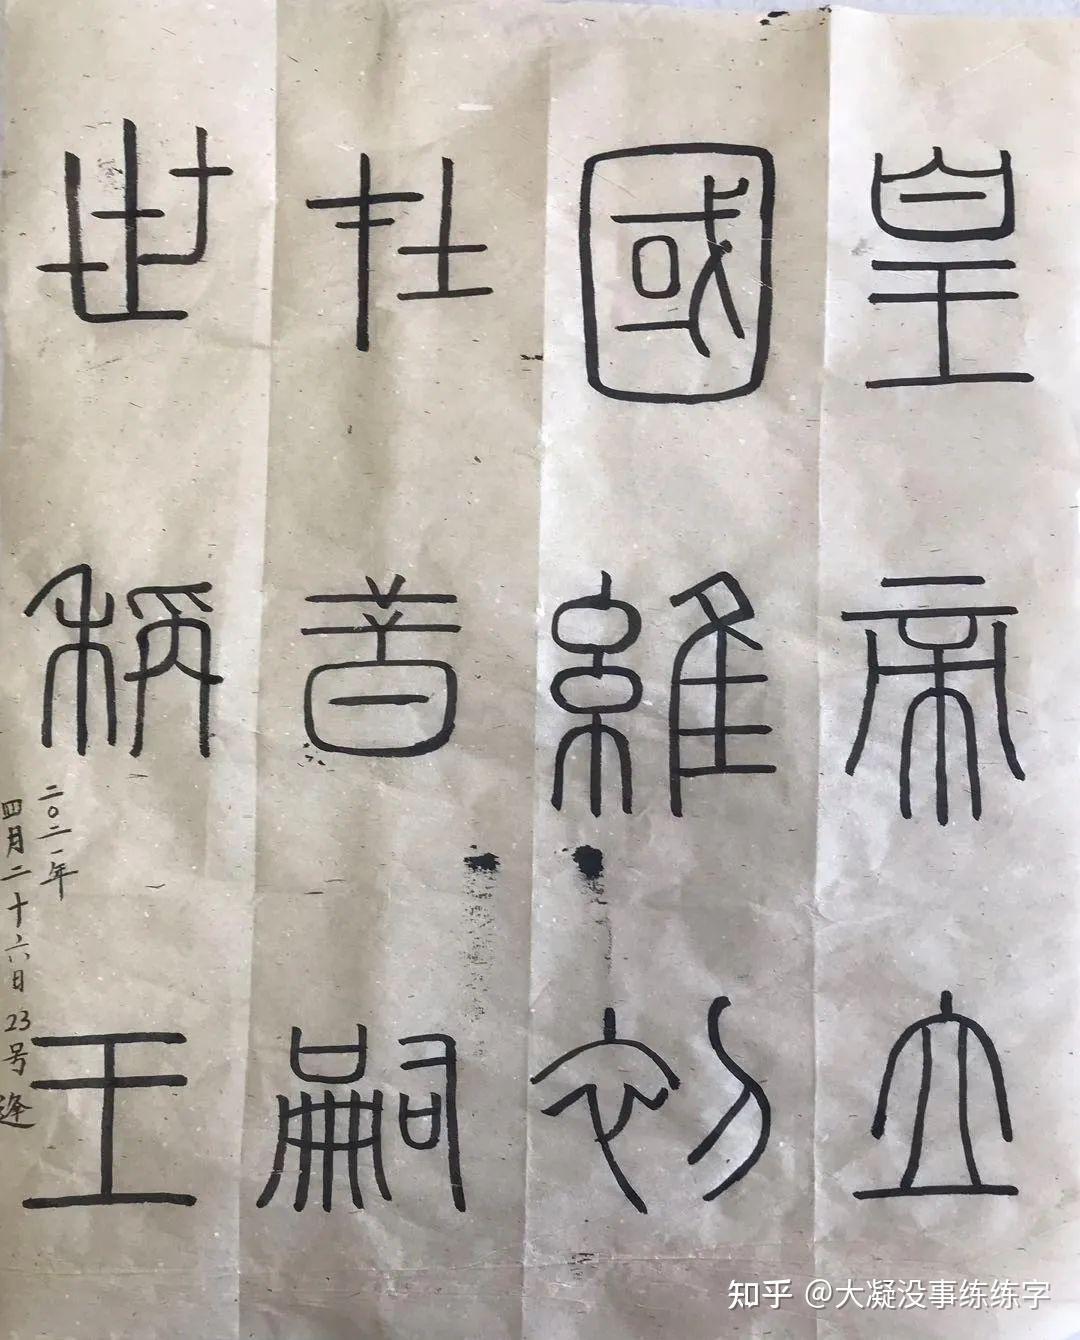 皇帝立
國維初
在昔嗣
世稱王
二〇二一年
四月二十六日 23号
知乎 @大凝没事练练字